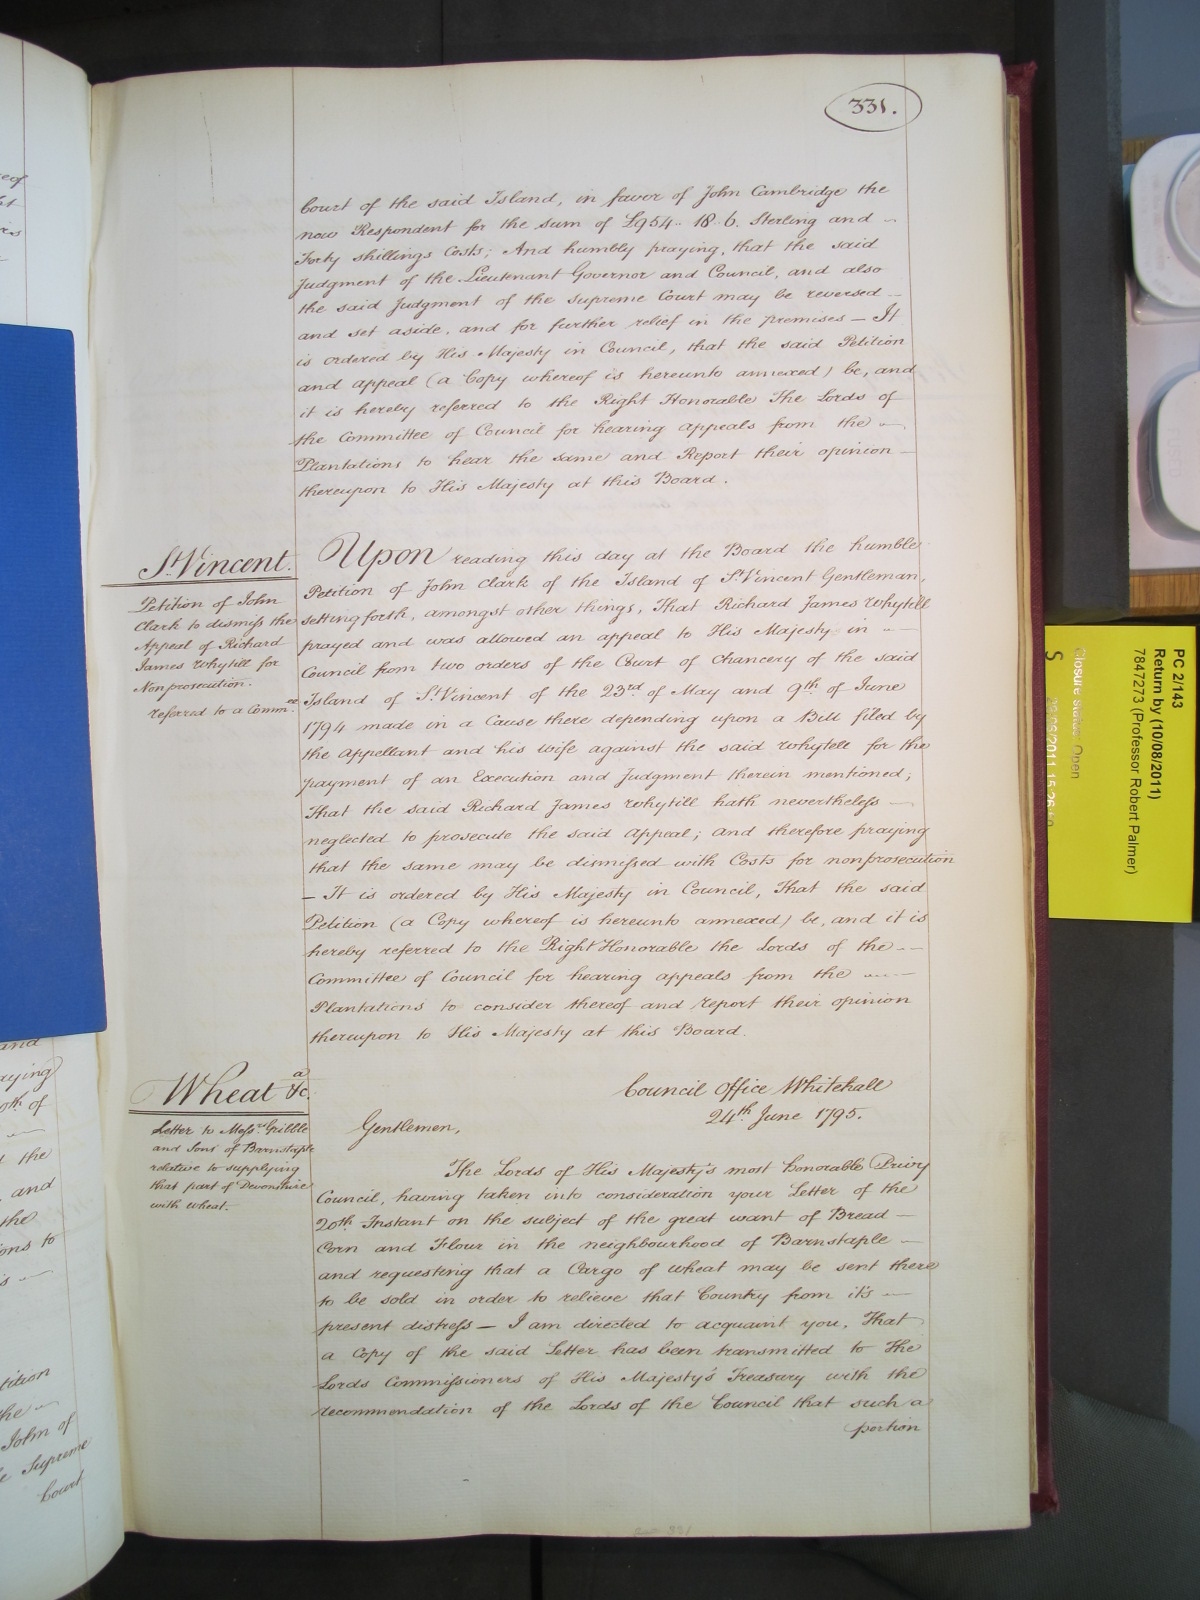 331.
Court of the said Island, in favor of John Cambridge the
now Respondent for the sum of £954.. 18.. 6. Sterling and
Forty shillings Costs; And humbly praying, that the said
Judgment of the Lieutenant Governor and Council, and also
the said Judgment of the Supreme Court may be reversed
and set aside, and for further relief in the premises — It
is ordered by His Majesty in Council, that the said Petition
and appeal (a Copy whereof is hereunto annexed) be, and
it is hereby referred to the Right Honorable The Lords of
the Committee of Council for hearing appeals from the
Plantations to hear the same and Report their opinion
thereupon to His Majesty at this Board.
St. Vincent.
Petition of John
Clark to dismiss the
Appeal of Richard
James Whytell for
Nonprosecution.
referred to a Commee.
Upon reading this day at the Board the humble
Petition of John Clark of the Island of St. Vincent Gentleman,
setting forth, amongst other things, That Richard James Whytell
prayed and was allowed an appeal to His Majesty in
Council from two orders of the Court of Chancery of the said
Island of St. Vincent of the 23rd of May and 9th of June
1794 made in a Cause there depending upon a Bill filed by
the Appellant and his wife against the said Whytell for the
payment of an Execution and Judgment therein mentioned;
That the said Richard James Whytell hath nevertheless —
neglected to prosecute the said Appeal; and therefore praying
that the same may be dismissed with Costs for nonprosecution
— It is ordered by His Majesty in Council, That the said
Petition (a Copy whereof is hereunto annexed) be, and it is
hereby referred to the Right Honorable the Lords of the
Committee of Council for hearing appeals from the
Plantations to consider thereof and report their opinion
thereupon to His Majesty at this Board.
Wheat &ca.
Letter to Messrs. Gribble
and Sons of Barnstaple
relative to supplying
that part of Devonshire
with wheat.
Council Office Whitehall
24th June 1795.
Gentlemen,
The Lords of His Majesty's most honorable Privy
Council, having taken into consideration your Letter of the
20th Instant on the subject of the great want of Bread
Corn and Flour in the neighbourhood of Barnstaple
and requesting that a Cargo of wheat may be sent there
to be sold in order to relieve that Country from it's
present distress — I am directed to acquaint you, That
a Copy of the said Letter has been transmitted to The
Lords Commissioners of His Majesty's Treasury with the
recommendation of the Lords of the Council that such a
portion
PC 2/143
Return by (10/08/2011)
7847273 (Professor Robert Palmer)
Closure status: Open
S